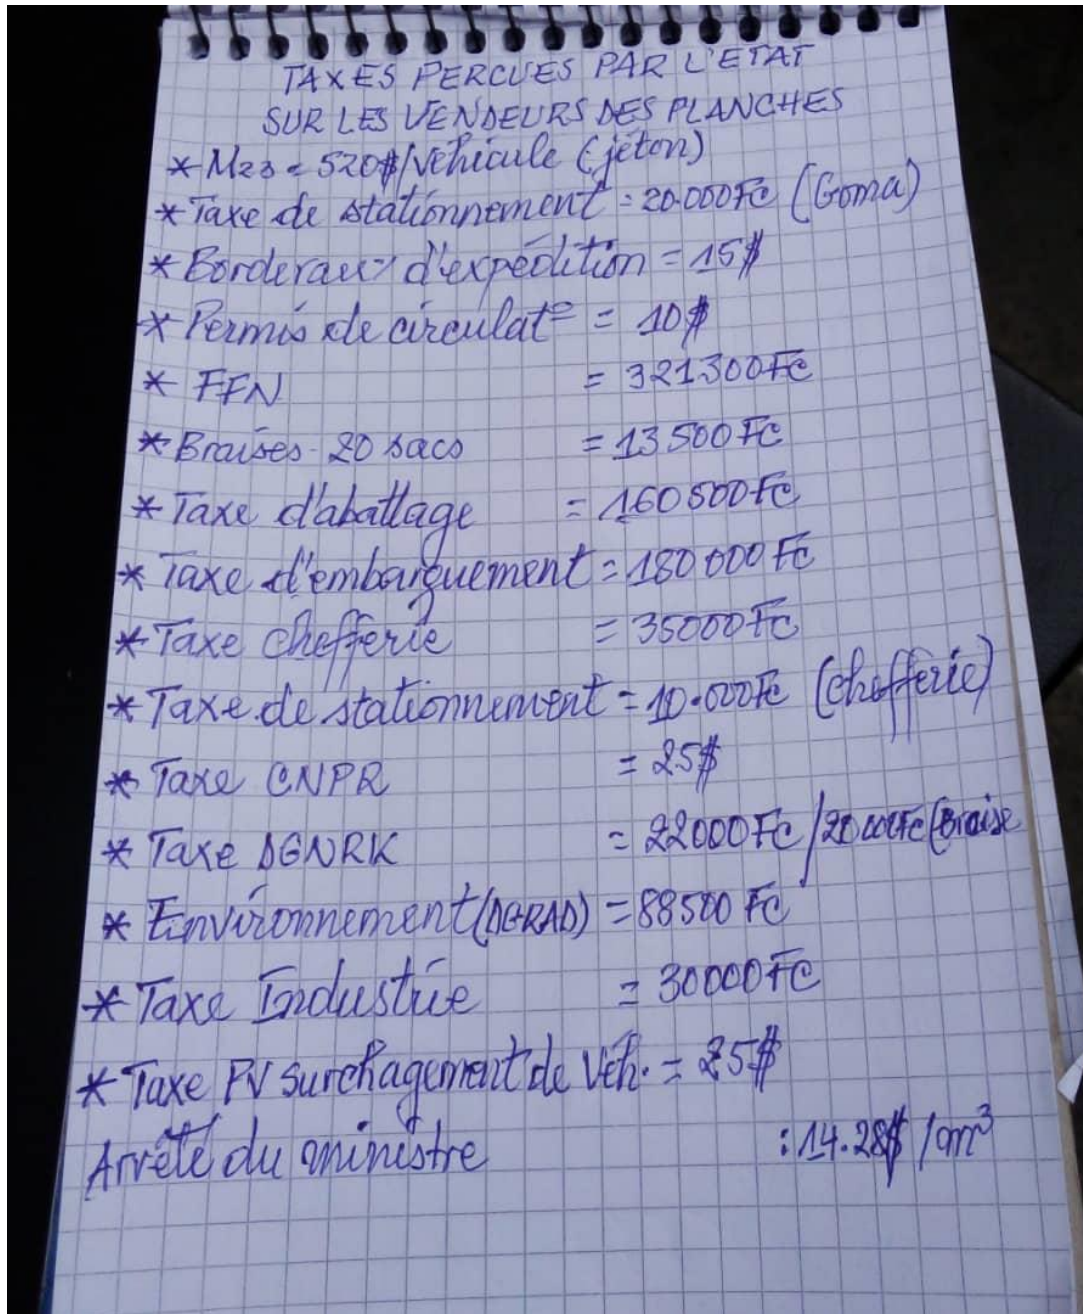 TAXES PERCUES PAR L'ETAT
SUR LES VENDEURS DES PLANCHES
* M23 = 520$/Véhicule (jéton)
* Taxe de stationnement = 20.000Fc (Goma)
* Borderaux d'expédition = 15$
* Permis de circulat° = 10$
* FFN = 321.300Fc
* Braises - 20 sacs = 13 500 Fc
* Taxe d'abattage = 160 500 Fc
* Taxe d'embarquement = 180 000 Fc
* Taxe chefferie = 35000 Fc
* Taxe de stationnement = 10.000Fc (chefferie)
* Taxe CNPR = 25$
* Taxe DGNRK = 22000 Fc/20 000Fc (Braise
* Environnement (DGRAD) = 88500 Fc
* Taxe Industrie = 30000 Fc
* Taxe PV surchagement de véh. = 25$
Arrêté du ministre : 14.28$ /m³